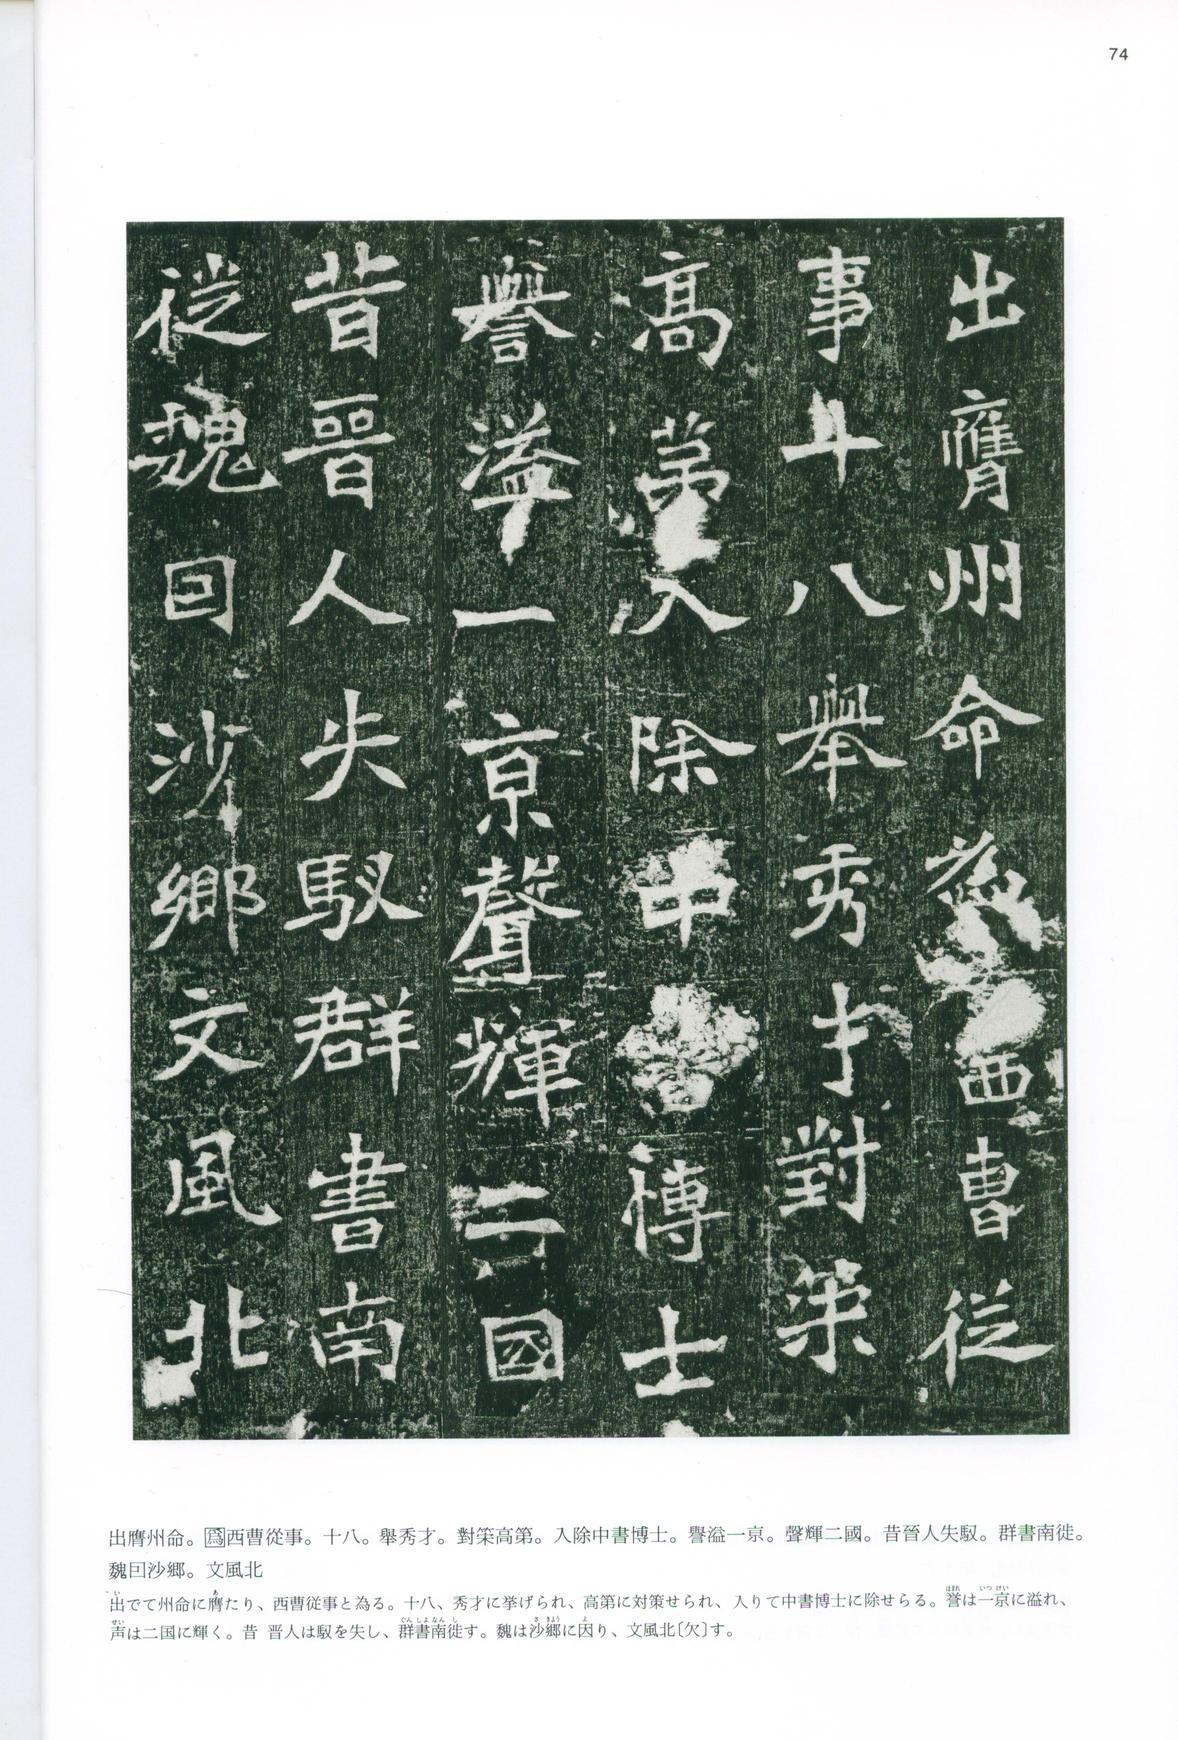 74
出膺州命爲西曹從
事十八舉秀才對策
高第入除中書博士
譽溢一京聲輝二國
昔晉人失馭群書南
從魏因沙鄉文風北
出膺州命。爲西曹從事。十八。舉秀才。對策高第。入除中書博士。譽溢一京。聲輝二國。昔晉人失馭。群書南徙。
魏囙沙鄉。文風北
出でて州命に膺たり、西曹従事と為る。十八、秀才に挙げられ、高第に対策せられ、入りて中書博士に除せらる。誉は一京に溢れ、
声は二国に輝く。昔 晋人は馭を失し、群書南徙す。魏は沙郷に因り、文風北〔欠〕す。